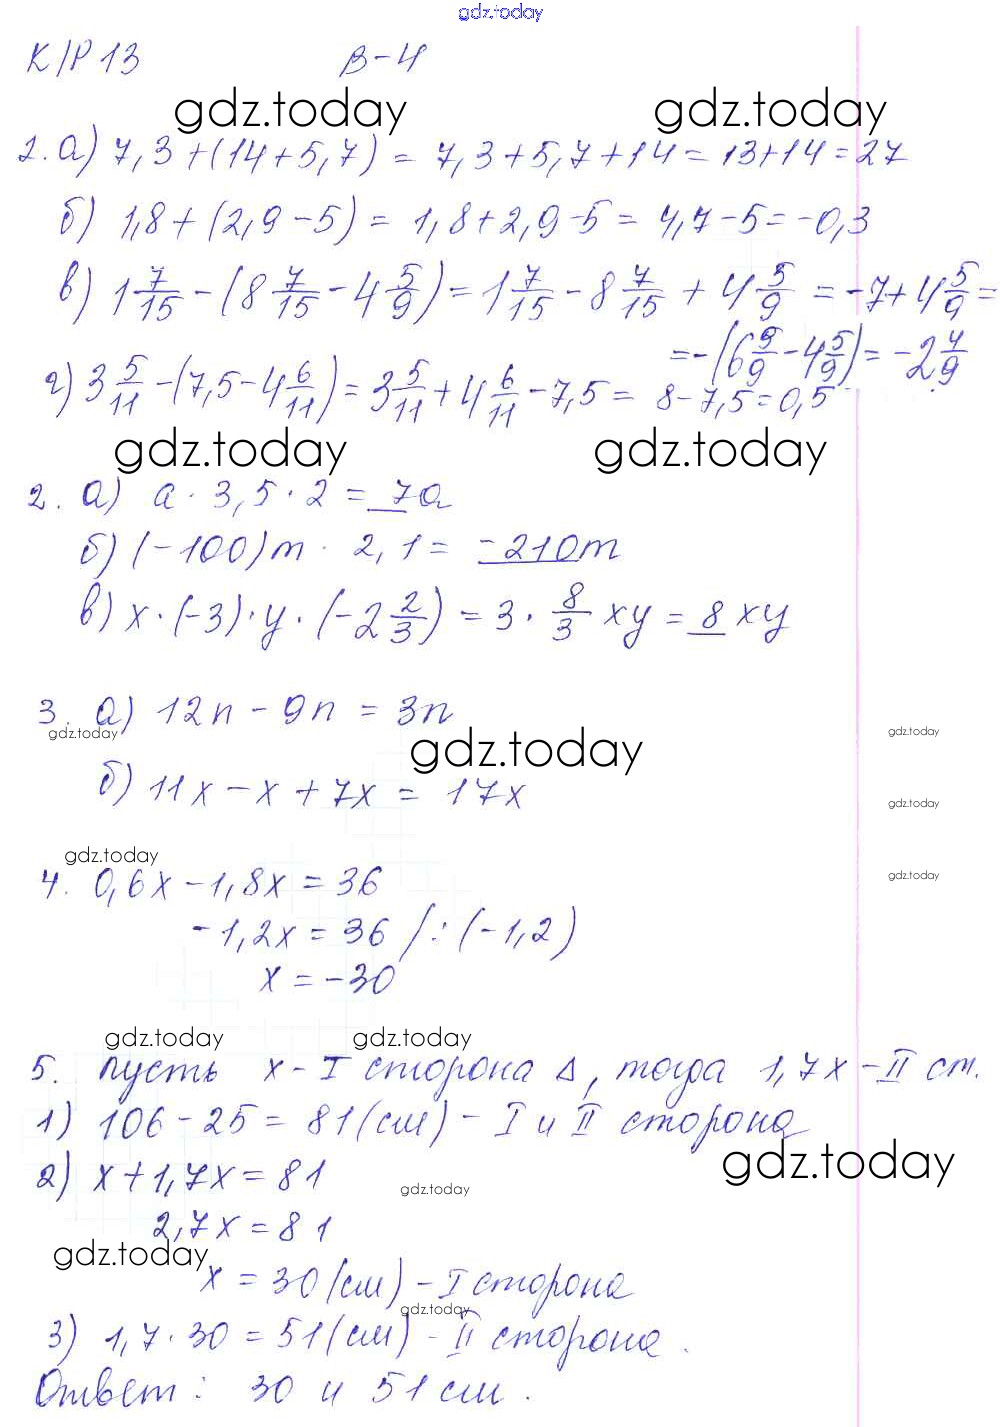 gdz.today
К/Р 13 В-4
gdz.today gdz.today
1. а) 7,3+(14+5,7) = 7,3+5,7+14 = 13+14 = 27
б) 1,8+(2,9-5) = 1,8+2,9-5 = 4,7-5 = -0,3
в) 1 7/15 - (8 7/15 - 4 5/9) = 1 7/15 - 8 7/15 + 4 5/9 = -7+4 5/9 =
= -(6 9/9 - 4 5/9) = -2 4/9
г) 3 5/11 - (7,5 - 4 6/11) = 3 5/11 + 4 6/11 - 7,5 = 8-7,5 = 0,5
gdz.today gdz.today
2. а) a · 3,5 · 2 = 7a
б) (-100)m · 2,1 = -210m
в) x · (-3) · y · (-2 2/3) = 3 · 8/3 xy = 8 xy
3. а) 12n - 9n = 3n
gdz.today gdz.today gdz.today
б) 11x - x + 7x = 17x
gdz.today
gdz.today
4. 0,6x - 1,8x = 36
gdz.today
-1,2x = 36 /:(-1,2)
x = -30
gdz.today gdz.today
5. Пусть x - I сторона Δ, тогда 1,7x - II ст.
1) 106 - 25 = 81 (см) - I и II сторона
gdz.today
2) x + 1,7x = 81
gdz.today
2,7x = 81
gdz.today
x = 30 (см) - I сторона
gdz.today
3) 1,7 · 30 = 51 (см) - II сторона.
Ответ: 30 и 51 см.